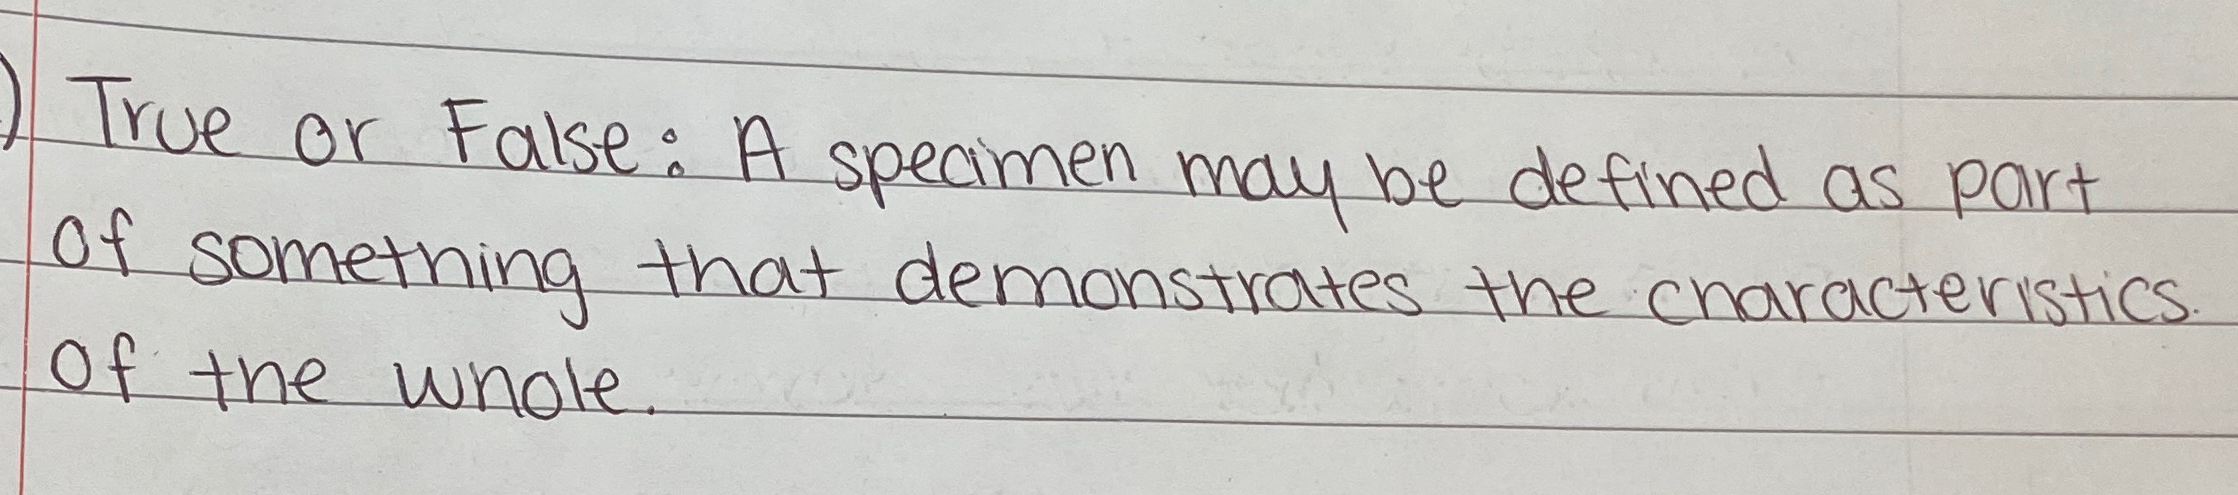 ) True or False: A specimen may be defined as part
of something that demonstrates the characteristics.
of the whole.